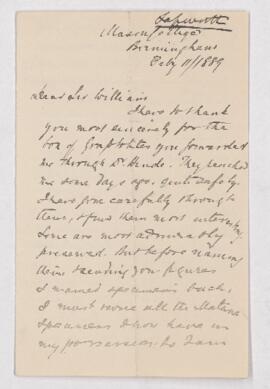 Lapworth
Mason College
Birmingham
Feby 11/1889
Dear Sir William
I have to thank
you most sincerely for the
box of Graptolites you forwarded
me through Dr Hinde. They reached
me some days ago, quite safely.
I have gone carefully through
them, & find them most interesting
Some are most admirably
preserved. But before naming
them & sending you figures
& named specimens back,
I must revise all the Matane
specimens I now have in
my possession to